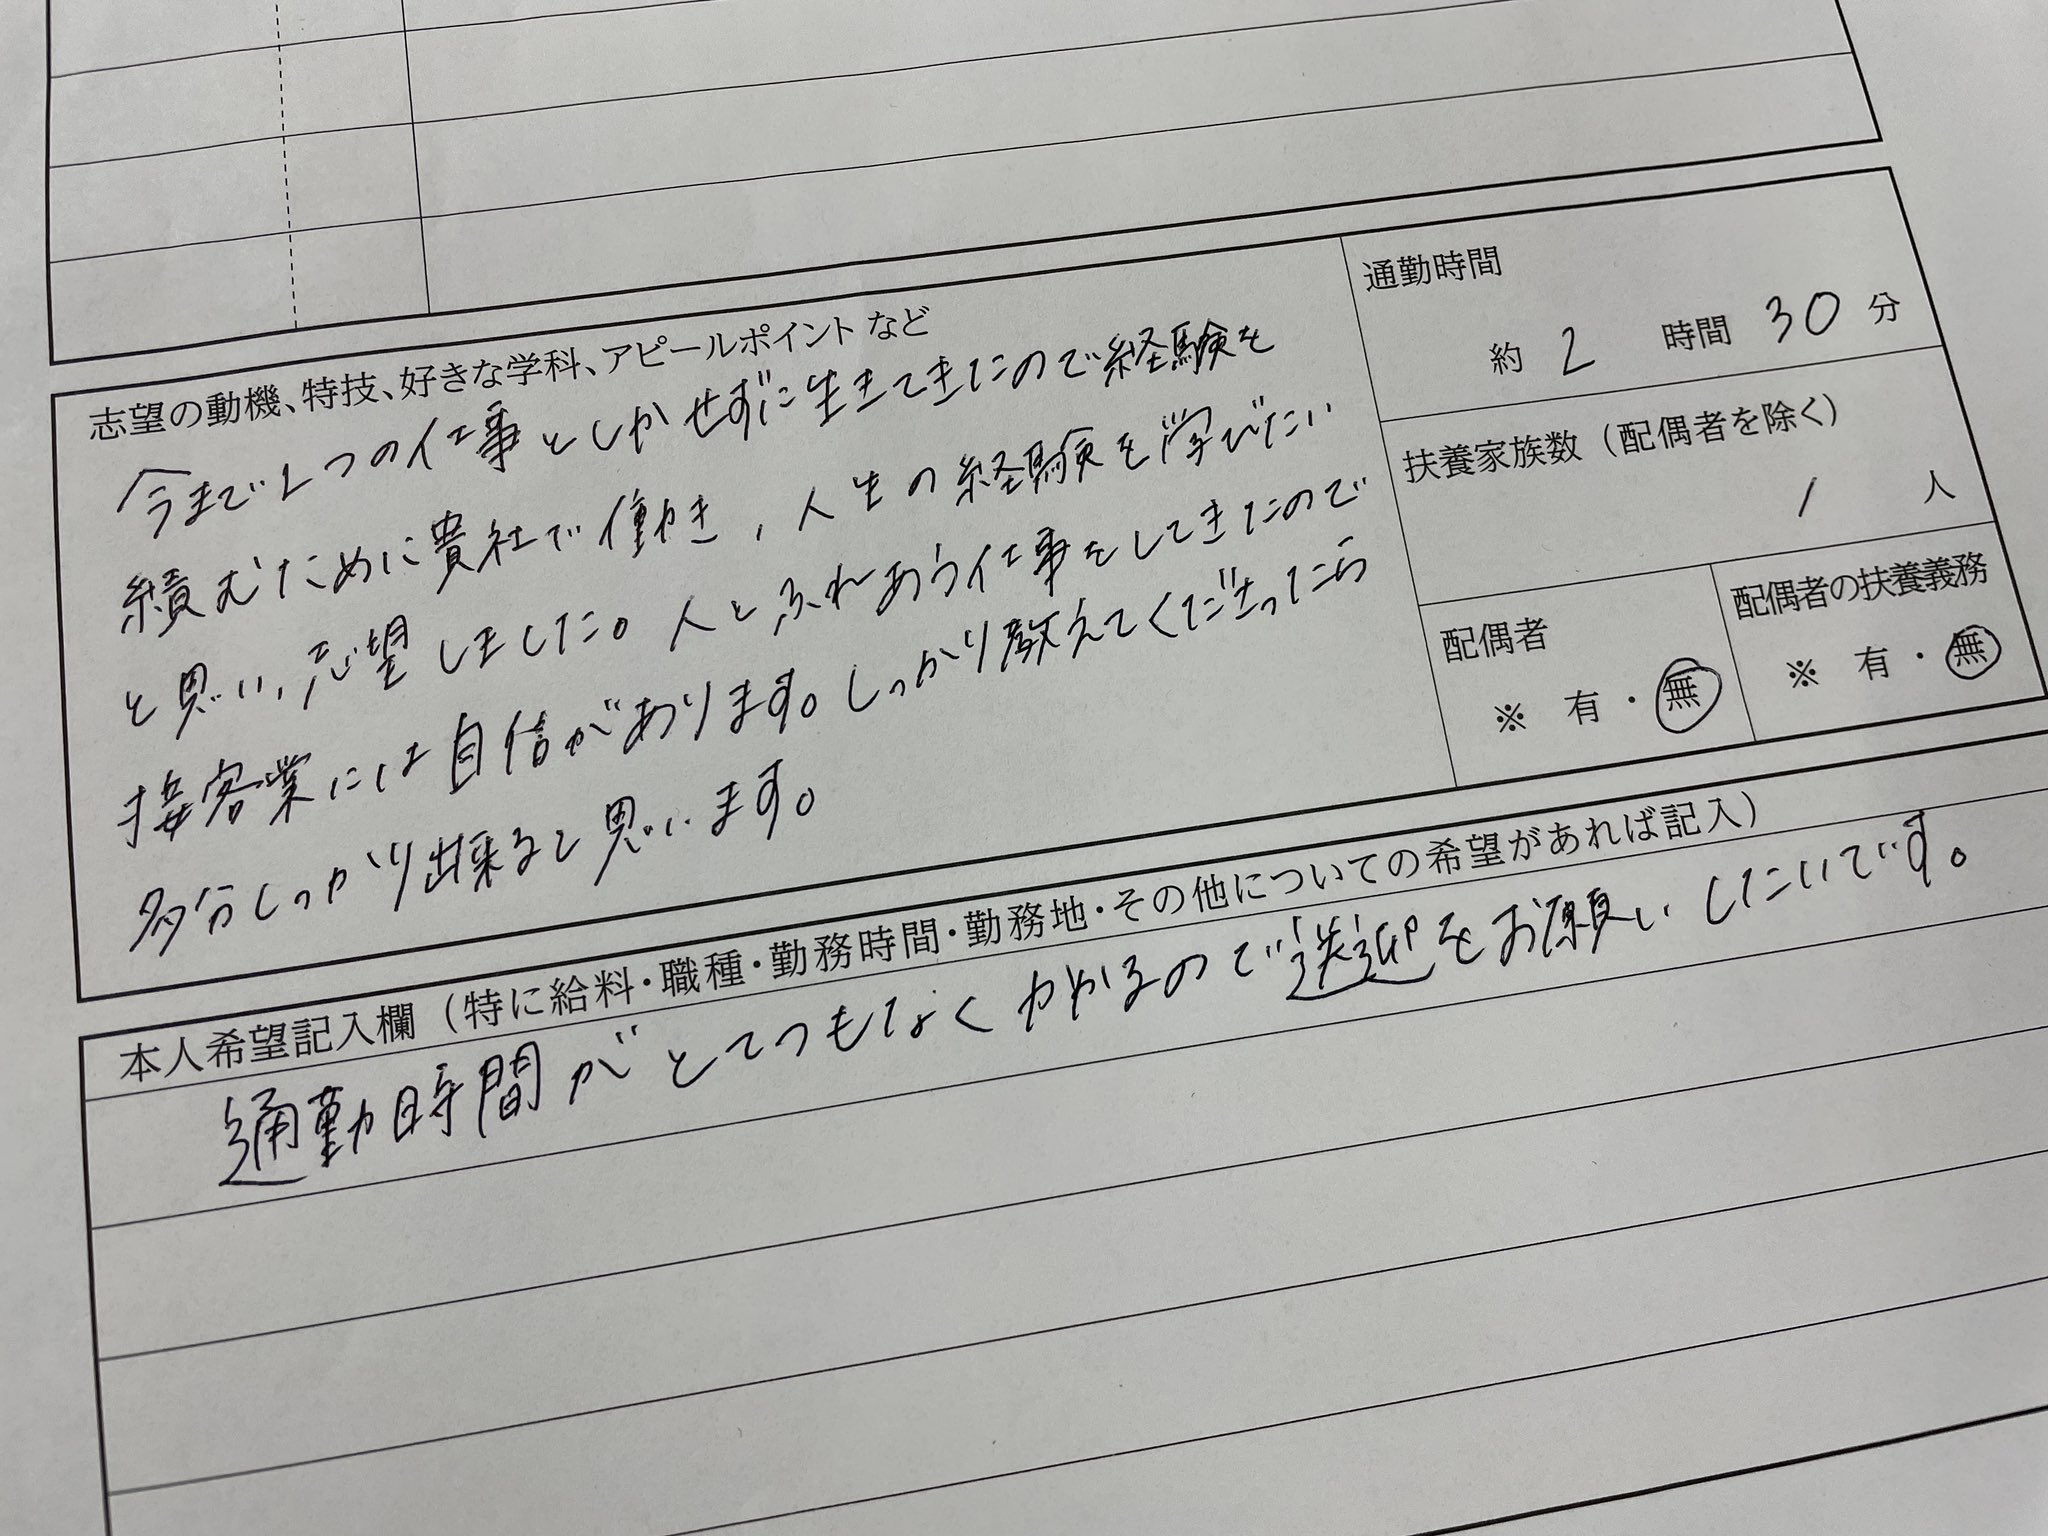 志望の動機、特技、好きな学科、アピールポイント など
今まで1つの仕事としかせずに生きてきたので経験を
績むために貴社で働き、人生の経験を学びたい
と思い、志望しました。人とふれあう仕事をしてきたので
接客業には自信があります。しっかり教えてくださったら
多分しっかり出来ると思います。
通勤時間
約 2 時間 30 分
扶養家族数（配偶者を除く）
1 人
配偶者
※ 有・無
配偶者の扶養義務
※ 有・無
本人希望記入欄（特に給料・職種・勤務時間・勤務地・その他についての希望があれば記入）
通勤時間がとてつもなくかかるので送迎をお願いしたいです。